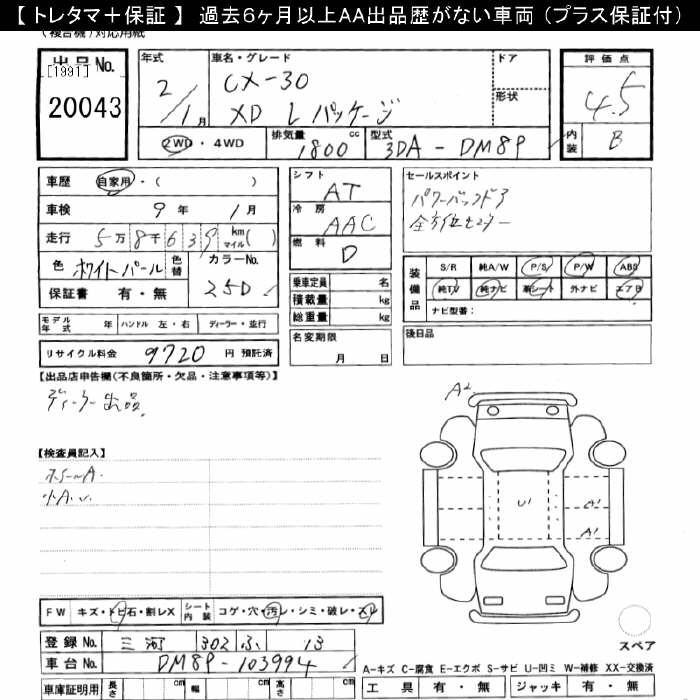 【 トレタマ＋保証 】 過去６ヶ月以上ＡＡ出品歴がない車両（プラス保証付）
(複合機)対応用紙
出品No.
[1991]
20043
年式 2/1月
車名・グレード CX-30
XD Lパッケージ
ドア
形状
評価点
4.5
内装 B
2WD・4WD
排気量 1800 cc
型式 3DA - DM8P
車歴 自家用・( )
車検 9年 1月
走行 5万8千639 km マイル( )
色 ホワイトパール 色替
カラーNo. 25D
保証書 有・無
シフト AT
冷房 AAC
燃料 D
乗車定員 名
積載量 kg
総重量 kg
名変期限 月 日
セールスポイント
パワーバックドア
全方位モニター
装備品
S/R 純A/W P/S P/W ABS
純TV 純ナビ 革シート 外ナビ エアB
ナビ型番：
後日品
モデル年式 年 ハンドル 左・右 ディーラー・並行
リサイクル料金 9720 円 預託済
【出品店申告欄(不良箇所・欠品・注意事項等)】
ディーラー出品
【検査員記入】
小A.U
A2
U1
A1
A1
FW キズ・トビ石・割レX
シート内装 コゲ・穴・汚レ・シミ・破レ・スレ
登録No. 三河 302 ふ 13
車台No. DM8P-103994
スペア
A-キズ C-腐食 E-エクボ S-サビ U-凹ミ W-補修 XX-交換済
車庫証明用 長さ cm 幅 cm 高さ cm
工具 有・無 ジャッキ 有・無